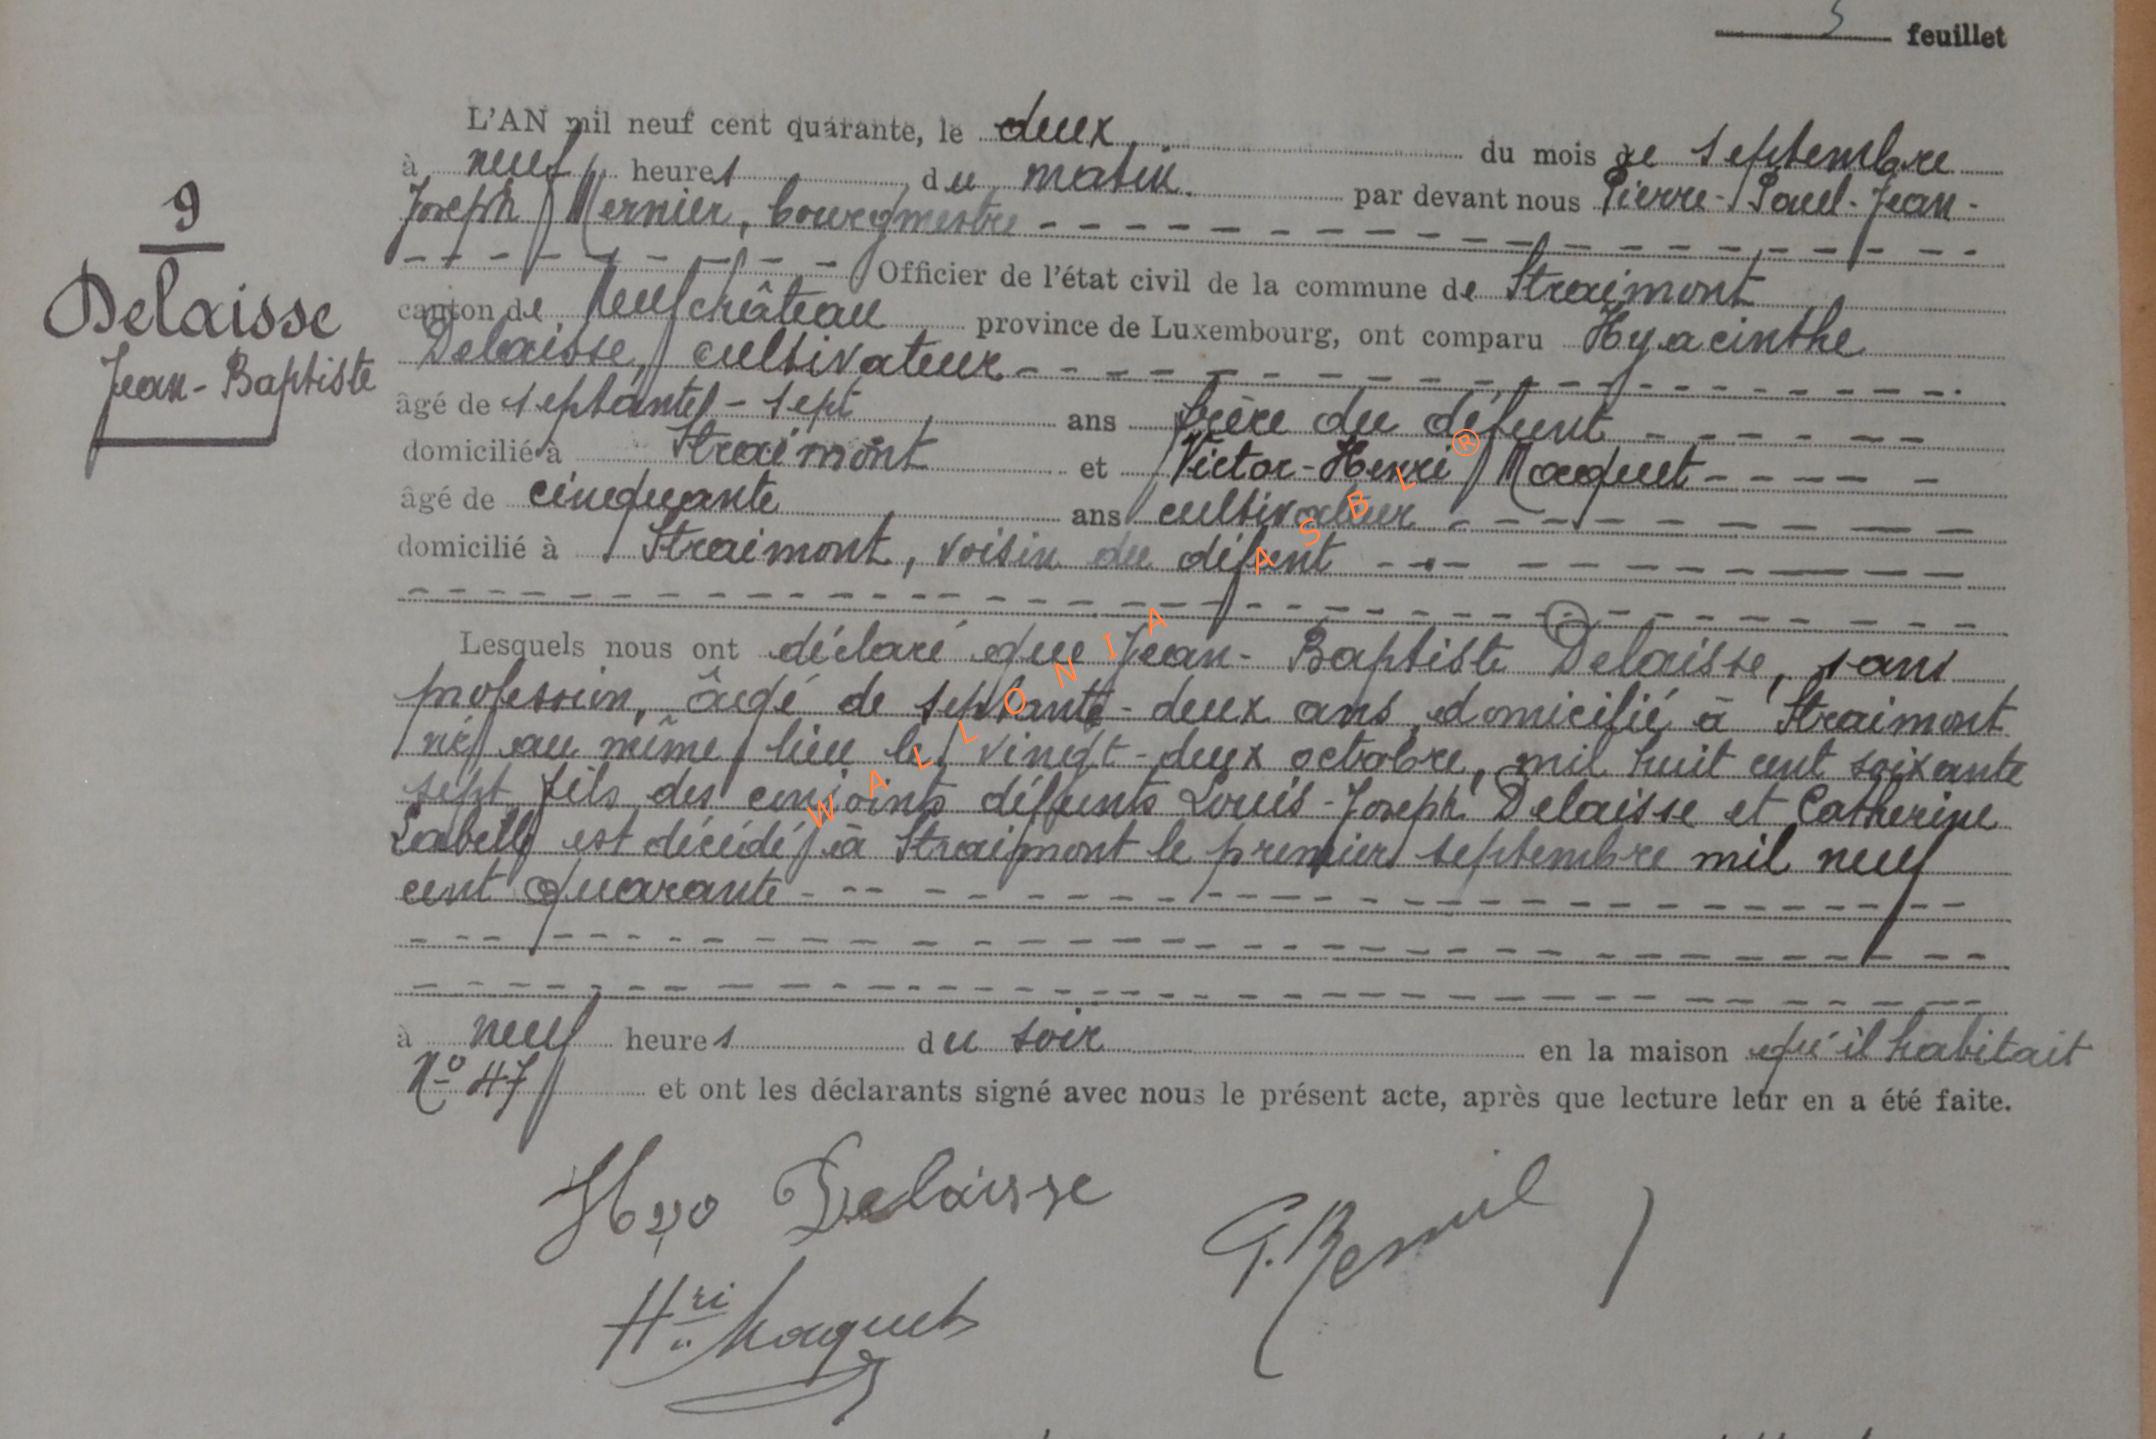 5 feuillet
L'AN mil neuf cent quarante, le deux du mois de septembre
à neuf heures du matin par devant nous Pierre-Paul-Jean-
Joseph Mernier, bourgmestre
Officier de l'état civil de la commune de Straimont
canton de Neufchâteau province de Luxembourg, ont comparu Hyacinthe
Delaisse, cultivateur
âgé de septante-sept ans frère du défunt
domicilié à Straimont et Victor-Henri Maquet
âgé de cinquante ans cultivateur
domicilié à Straimont, voisin du défunt
9
Delaisse
Jean-Baptiste
Lesquels nous ont déclaré que Jean-Baptiste Delaisse, sans
profession, âgé de septante-deux ans, domicilié à Straimont
né au même lieu le vingt-deux octobre, mil huit cent soixante
sept fils des conjoints défunts Louis-Joseph Delaisse et Catherine
est décédé à Straimont le premier septembre mil neuf
cent quarante
à neuf heures du soir en la maison qu'il habitait
N° 47 et ont les déclarants signé avec nous le présent acte, après que lecture leur en a été faite.
Delaisse
Hri Maquet
WALLONIA ASBL ®